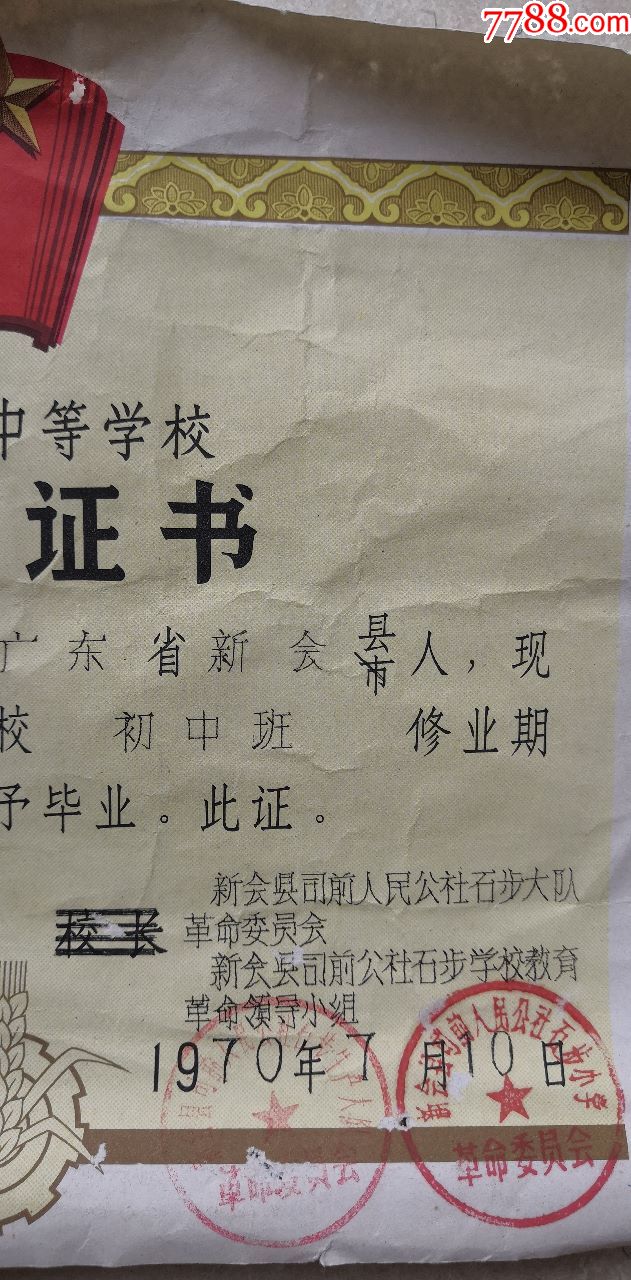 7788.com
中等学校
证书
广东省新会县市人，现
校 初中班 修业期
予毕业。此证。
新会县司前人民公社石步大队
校长 革命委员会
新会县司前公社石步学校教育
革命领导小组
1970年7月10日
革命委员会
新会县司前人民公社石步小学
革命委员会